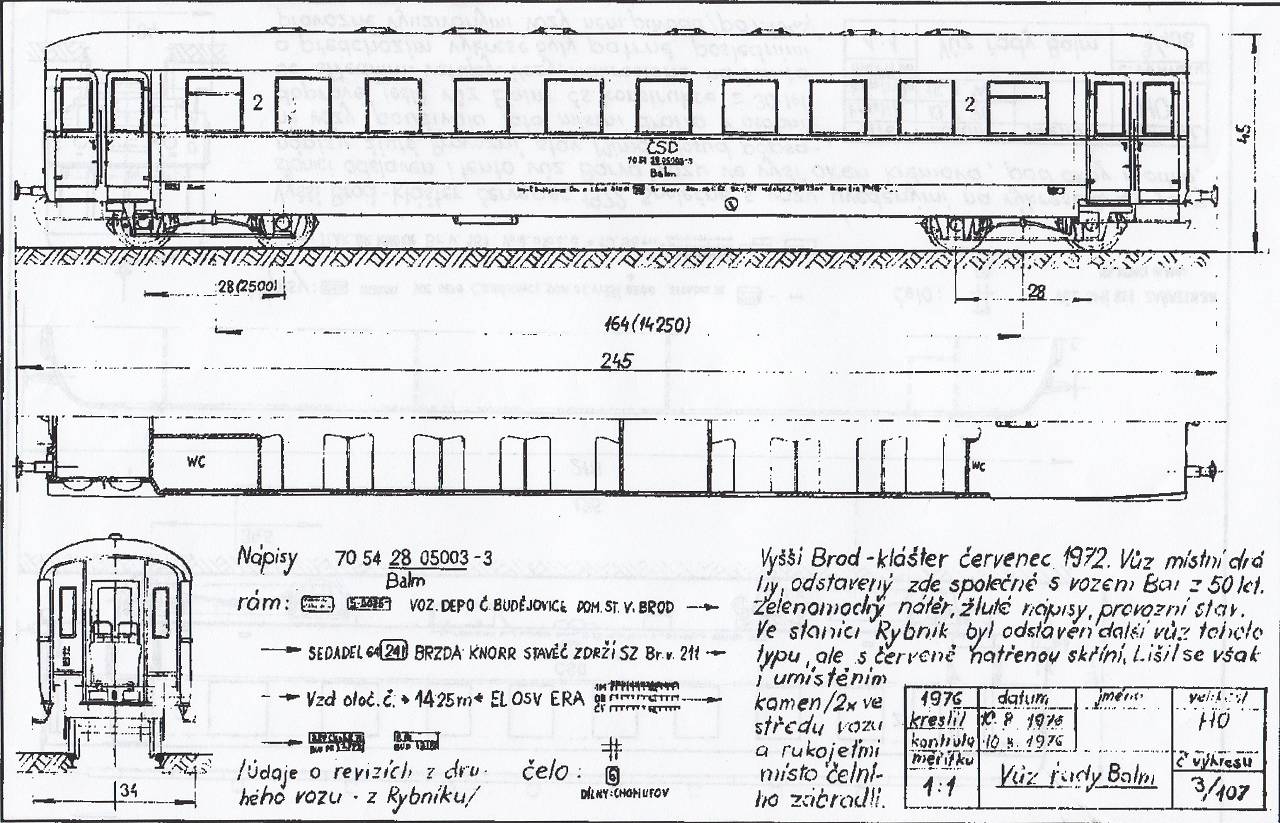 2
2
ČSD
70 54 28 05003-3
Balm
45
28(2500)
28
164(14250)
245
WC
WC
Nápisy 70 54 28 05003-3
Balm
rám: VOZ. DEPO Č. BUDĚJOVICE DOM. ST. V. BROD
SEDADEL 64 24t BRZDA KNORR STAVĚČ ZDRŽÍ SZ Br. v. 211
Vzd otoč. č. 14 25m EL OSV ERA
/Údaje o revizích z dru-
hého vozu - z Rybníku/
čelo:
6
DÍLNY-CHOMUTOV
34
Vyšší Brod-klášter červenec 1972. Vůz místní drá
hy, odstavený zde společně s vozem Bai z 50 let.
Zelenomodrý nátěr, žluté nápisy, provozní stav.
Ve stanici Rybník byl odstaven další vůz tohoto
typu, ale s červeně natřenou skříní. Lišil se však
i umístěním
kamen/2x ve
středu vozu
a rukojetmi
místo čelní-
ho zábradlí.
1976 datum jméno velikost
kreslil 10. 8 1976 H0
kontrola 10 8. 1976
měřítko
1:1
Vůz řady Balm
č výkresu
3/107